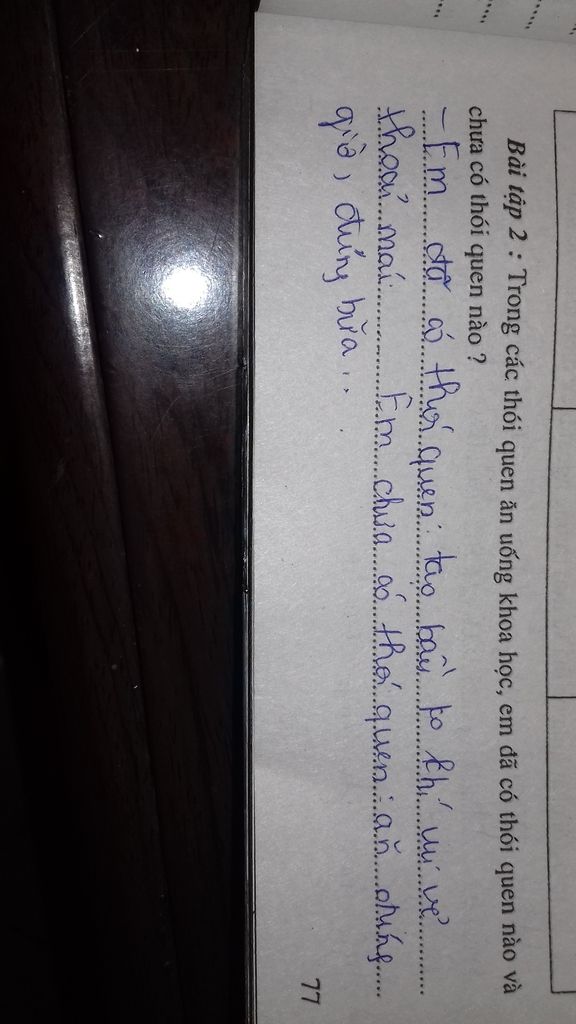 Bài tập 2 : Trong các thói quen ăn uống khoa học, em đã có thói quen nào và
chưa có thói quen nào ?
- Em đã có thói quen: tạo bầu ko khí vui vẻ
thoải mái. Em chưa có thói quen: ăn đúng
giờ, đúng bữa...
77